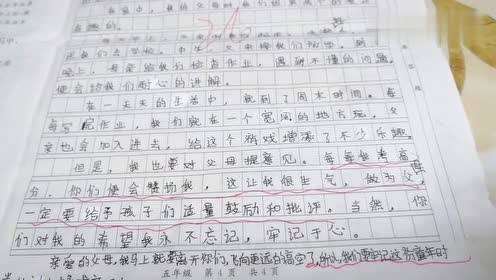 有趣的。
送我们去学校，中午
晚上，母亲给我们检查作业，遇到不懂的问题，
便会给我们耐心的讲解。
在一天天的生活中，就到了周末时间。每
每写完作业，我们就在一个宽阔的地方玩，父
亲也会加入进去，给这个游戏增添了不少乐趣。
但是，我也要对父母提意见。每每我考高
分，你们便会赞扬我，这让我很生气，做为父母
一定要给予孩子们适量鼓励和批评。当然，你
们对我的希望我永不忘记，牢记于心。
亲爱的父母，我马上就要离开你们，飞向更远的高空了，所以，我们要牢记这份童年时
五年级 第4页 共4页